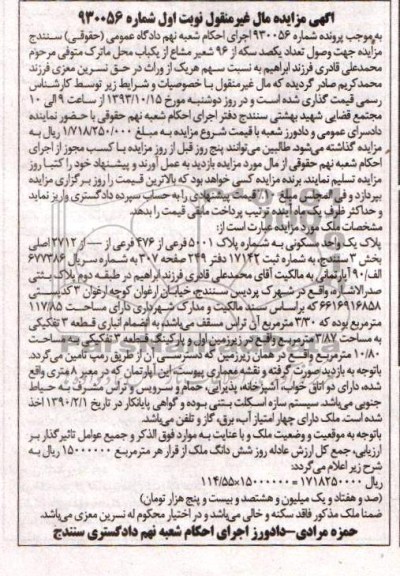 آگهی مزایده مال غیرمنقول نوبت اول شماره ۹۳۰۰۵۶
به موجب پرونده شماره ۹۳۰۰۵۶ اجرای احکام شعبه نهم دادگاه عمومی (حقوقی) سنندج
مزایده جهت وصول تعداد یکصد سکه از ۹۶ شعیر مشاع از یکباب محل ماترک متوفی مرحوم
محمدعلی قادری فرزند ابراهیم به نسبت سهم هریک از وراث در حق نسرین معزی فرزند
محمدکریم صادر گردیده که مال غیرمنقول با خصوصیات و شرایط زیر توسط کارشناس
رسمی قیمت گذاری شده است و در روز دوشنبه مورخ ۱۳۹۳/۱۰/۱۵ از ساعت ۹ الی ۱۰
مجتمع قضایی شهید بهشتی سنندج دفتر اجرای احکام شعبه نهم حقوقی با حضور نماینده
دادسرای عمومی و دادورز شعبه با قیمت شروع مزایده به مبلغ ۱/۷۱۸/۲۵۰/۰۰۰ ریال به
مزایده گذاشته می‌شود. طالبین می‌توانند پنج روز قبل از روز مزایده با کسب مجوز از اجرای
احکام شعبه نهم حقوقی از مال مورد مزایده بازدید به عمل آورند و پیشنهاد خود را کتبا روز
مزایده تسلیم نمایند. برنده مزایده کسی خواهد بود که بالاترین قیمت را روز برگزاری مزایده
بپردازد و فی المجلس مبلغ ۱۰٪ قیمت پیشنهادی را به حساب سپرده دادگستری واریز نماید
و حداکثر ظرف یک ماه آینده ترتیب پرداخت مابقی قیمت را بدهد.
مشخصات ملک مورد مزایده عبارت است از:
پلاک یک واحد مسکونی به شماره پلاک ۵۰۰۱ فرعی از ۴۷۶ فرعی از --- از ۲۷۱۲ اصلی
بخش ۳ سنندج، به شماره ثبت ۱۷۱۴۲ دفتر ۲۴۹ صفحه ۳۰۷ به شماره سریال ۶۷۷۳۸۶
الف/۹۰ آپارتمانی به مالکیت آقای محمدعلی قادری فرزند ابراهیم در طبقه دوم پلاک بتنی
صدرالاشاره، واقع در شهرک پردیس سنندج، خیابان ارغوان کوچه ارغوان ۳ کدپستی
۶۶۱۶۹۱۶۸۵۸ که براساس سند مالکیت و مدارک شهرداری دارای مساحت ۱۱۷/۸۵
مترمربع بوده که ۳/۳۰ مترمربع آن تراس مسقف می‌باشد. به انضمام انباری قطعه ۳ تفکیکی
به مساحت ۳/۸۷ مترمربع واقع در زیرزمین اول و پارکینگ قطعه ۲ تفکیکی به مساحت
۱۰/۸۰ مترمربع واقع در همان زیرزمین که دسترسی آن از طریق رمپ تأمین می‌گردد.
باتوجه به بازدید صورت گرفته و نقشه معماری پیوست، این آپارتمان که در معبر ۸ متری واقع
شده، دارای دو اتاق خواب، آشپزخانه، پذیرایی، حمام و سرویس و تراس مشرف به حیاط
جنوبی می‌باشد. سیستم سازه اسکلت بتنی بوده و گواهی پایانکار در تاریخ ۱۳۹۰/۲/۱ اخذ
شده است. ملک دارای چهار امتیاز آب، برق، گاز و تلفن می‌باشد.
باتوجه به موقعیت و وضعیت ملک و با عنایت به موارد فوق الذکر و جمیع عوامل تاثیرگذار بر
ارزیابی، جمع کل ارزش عادله روز شش دانگ ملک از قرار هر مترمربع ۱۵۰۰۰۰۰۰ ریال به
شرح زیر اعلام می‌گردد:
ریال ۱۷۱۸۲۵۰۰۰۰ = ۱۵۰۰۰۰۰۰×۱۱۴/۵۵
(صد و هفتاد و یک میلیون و هشتصد و بیست و پنج هزار تومان)
ضمنا ملک مذکور فاقد سکنه و خالی می‌باشد و در اختیار محکوم له نسرین معزی می‌باشد.
حمزه مرادی-دادورز اجرای احکام شعبه نهم دادگستری سنندج